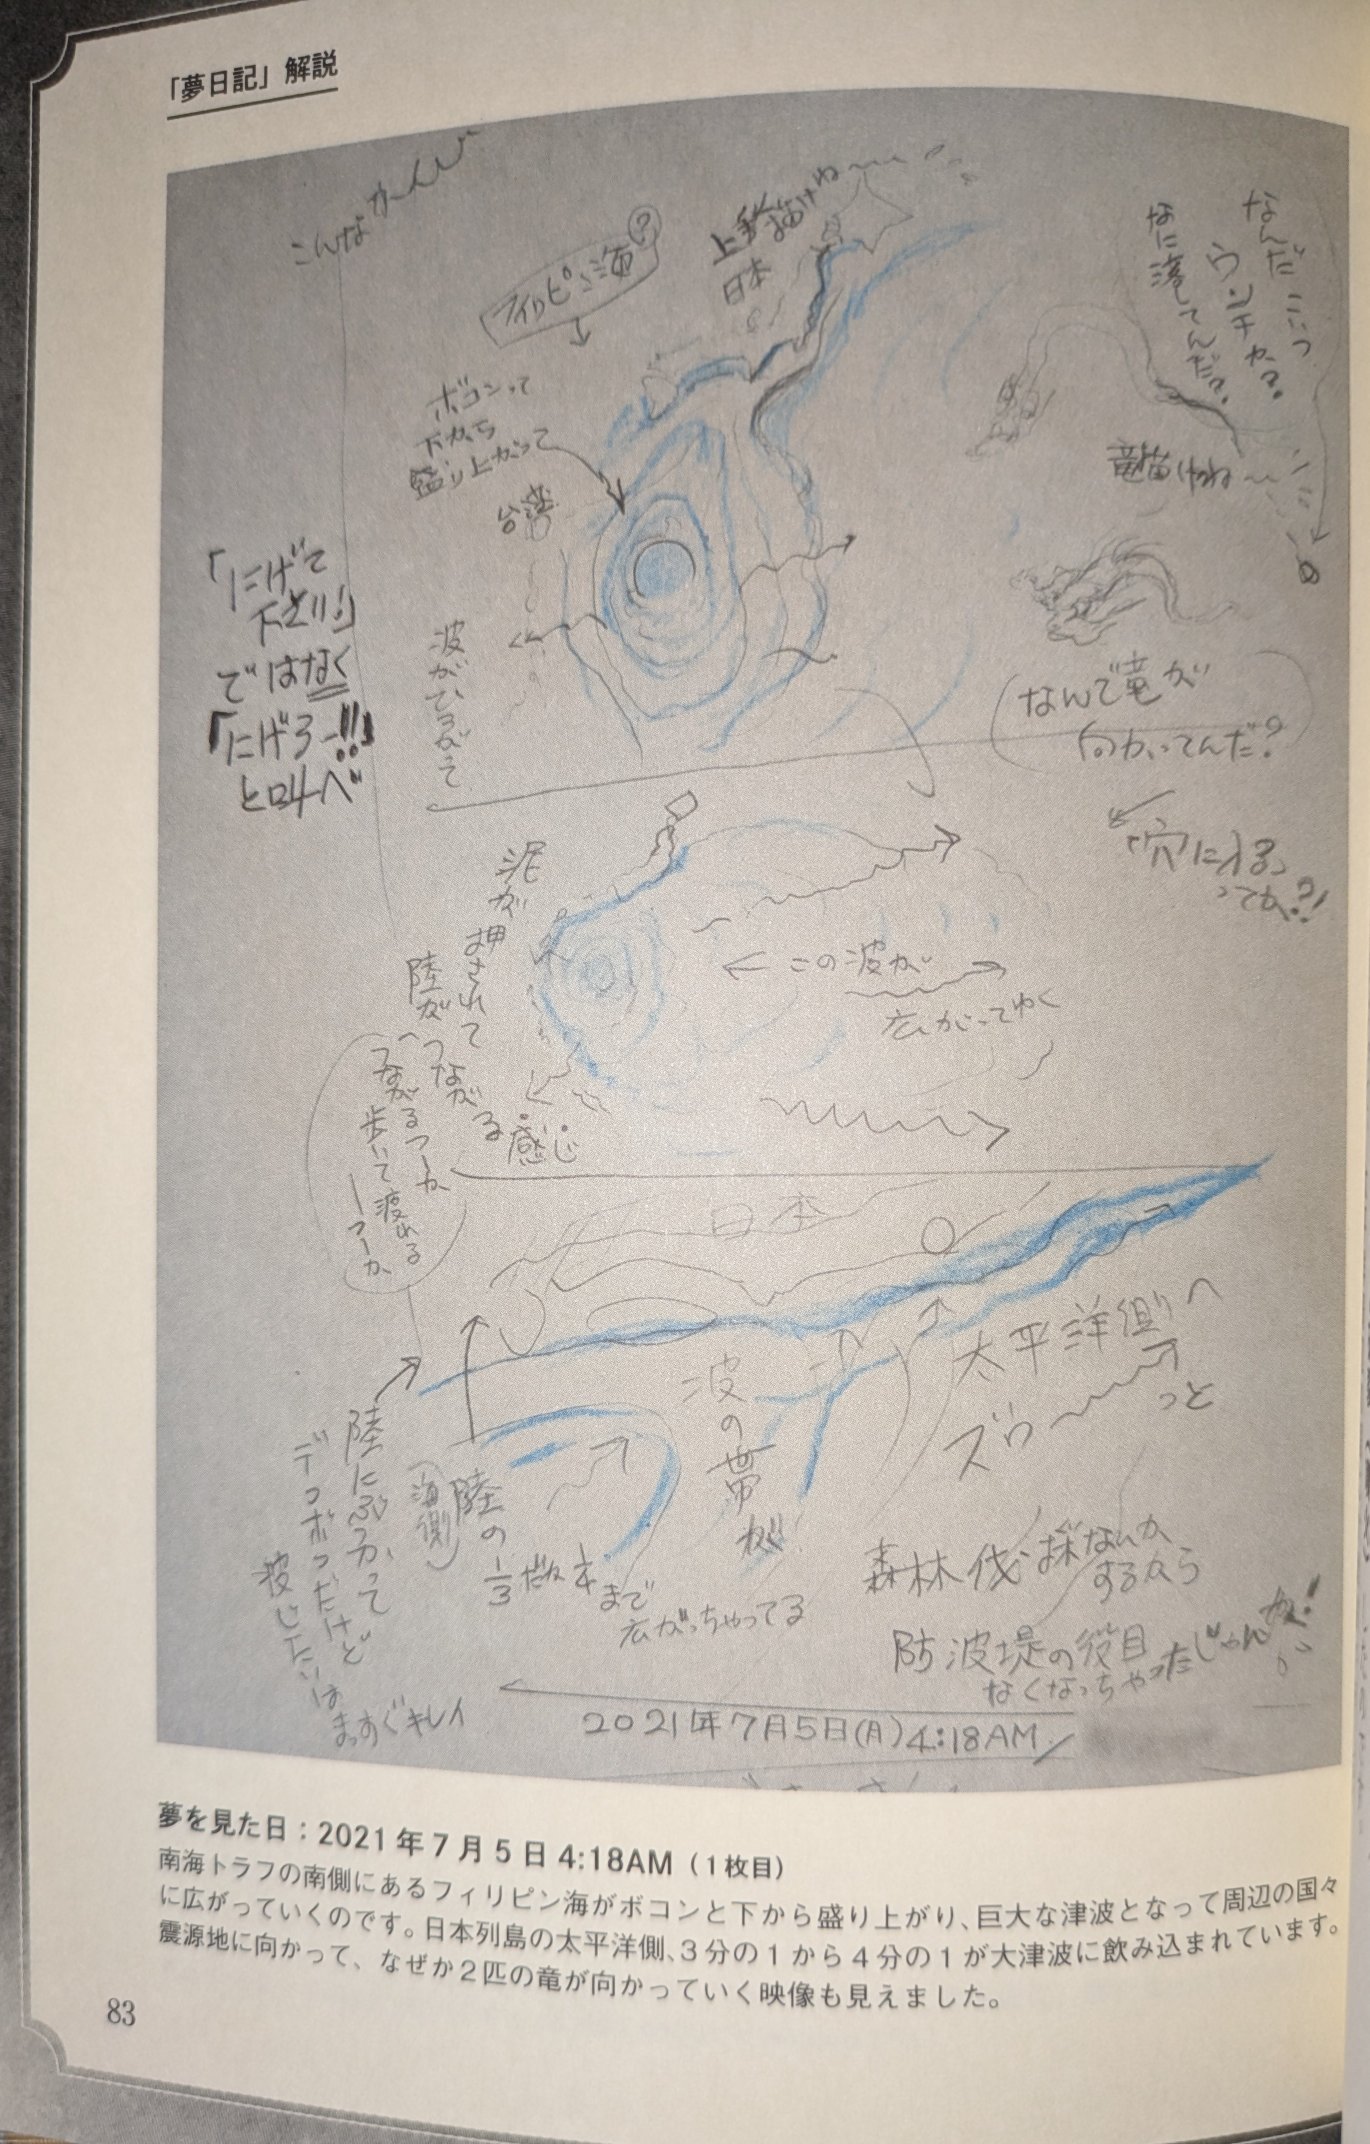 「夢日記」解説
こんなかんじ
フィリピン海?
上手く描けね〜
日本
ボコンって
下から
盛り上がって
台湾
なんだこいつ
ウンチか?
なに落してんだ?
竜描けね〜
「にげて
下さい!」
ではなく
「にげろー!!」
と叫べ
波がひろがって
なんで竜が
向かってんだ?
「穴に入る」
ってか?!
泥が押されて
陸がつながる
感じ
つながるつーか
歩いて渡れる
つーか
この波が
広がってゆく
日本
太平洋側へ
ズウ〜っと
波の帯が
陸にぶつかって
デコボコだけど
波じたいは
まっすぐキレイ
(海側)
陸の
1/3だか1/4まで
広がっちゃってる
森林伐採なんか
するから
防波堤の役目
なくなっちゃったじゃんか!
2021年7月5日(月)4:18AM
夢を見た日:2021年7月5日4:18AM(1枚目)
南海トラフの南側にあるフィリピン海がボコンと下から盛り上がり、巨大な津波となって周辺の国々
に広がっていくのです。日本列島の太平洋側、3分の1から4分の1が大津波に飲み込まれています。
震源地に向かって、なぜか2匹の竜が向かっていく映像も見えました。
83